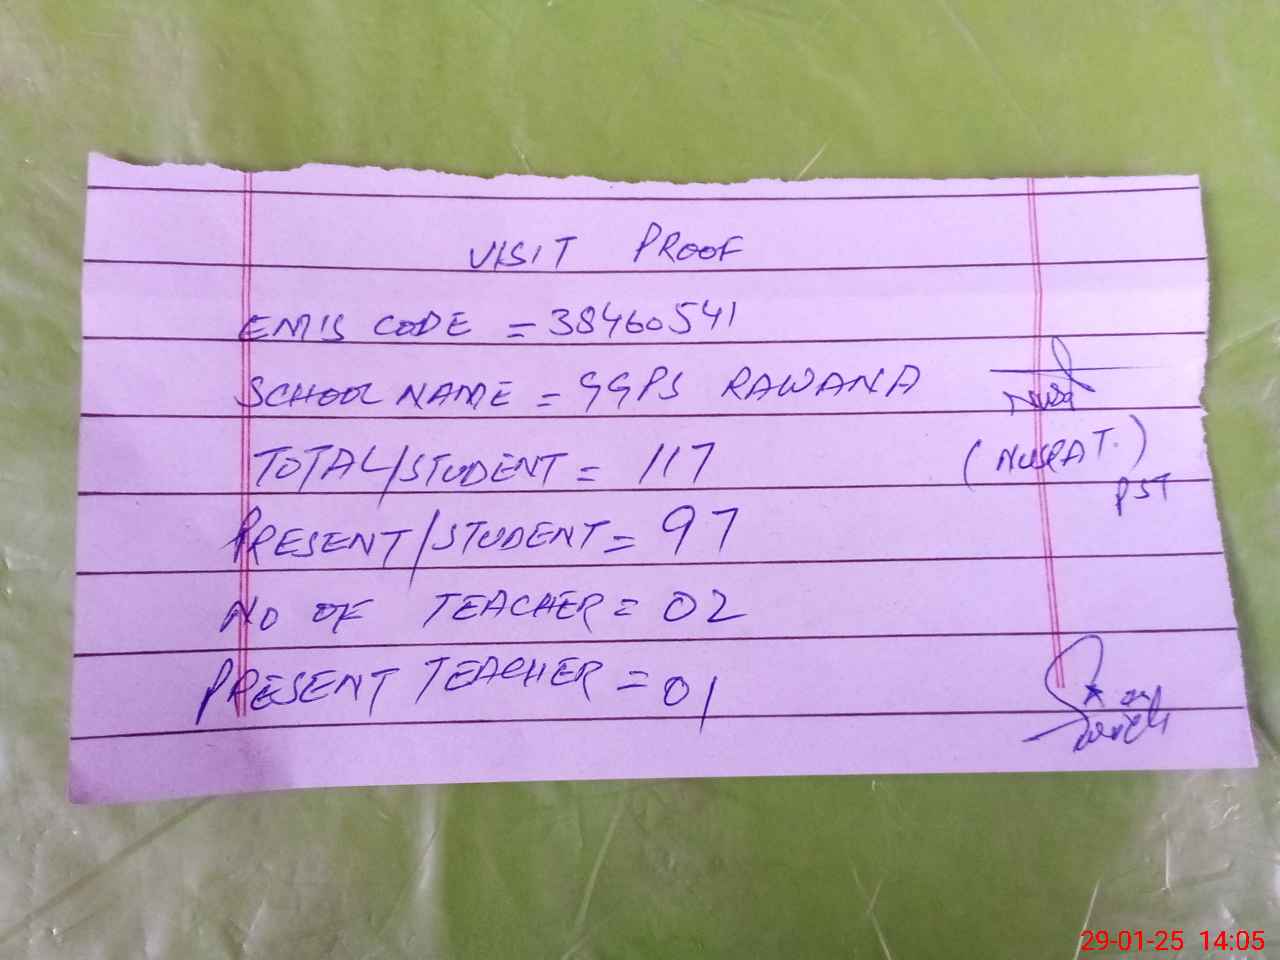 VISIT PROOF
EMIS CODE = 38460541
SCHOOL NAME = GGPS RAWANA
TOTAL/STUDENT = 117
(NUSRAT.)
PST
PRESENT/STUDENT = 97
NO OF TEACHER = 02
PRESENT TEACHER = 01
29-01-25 14:05